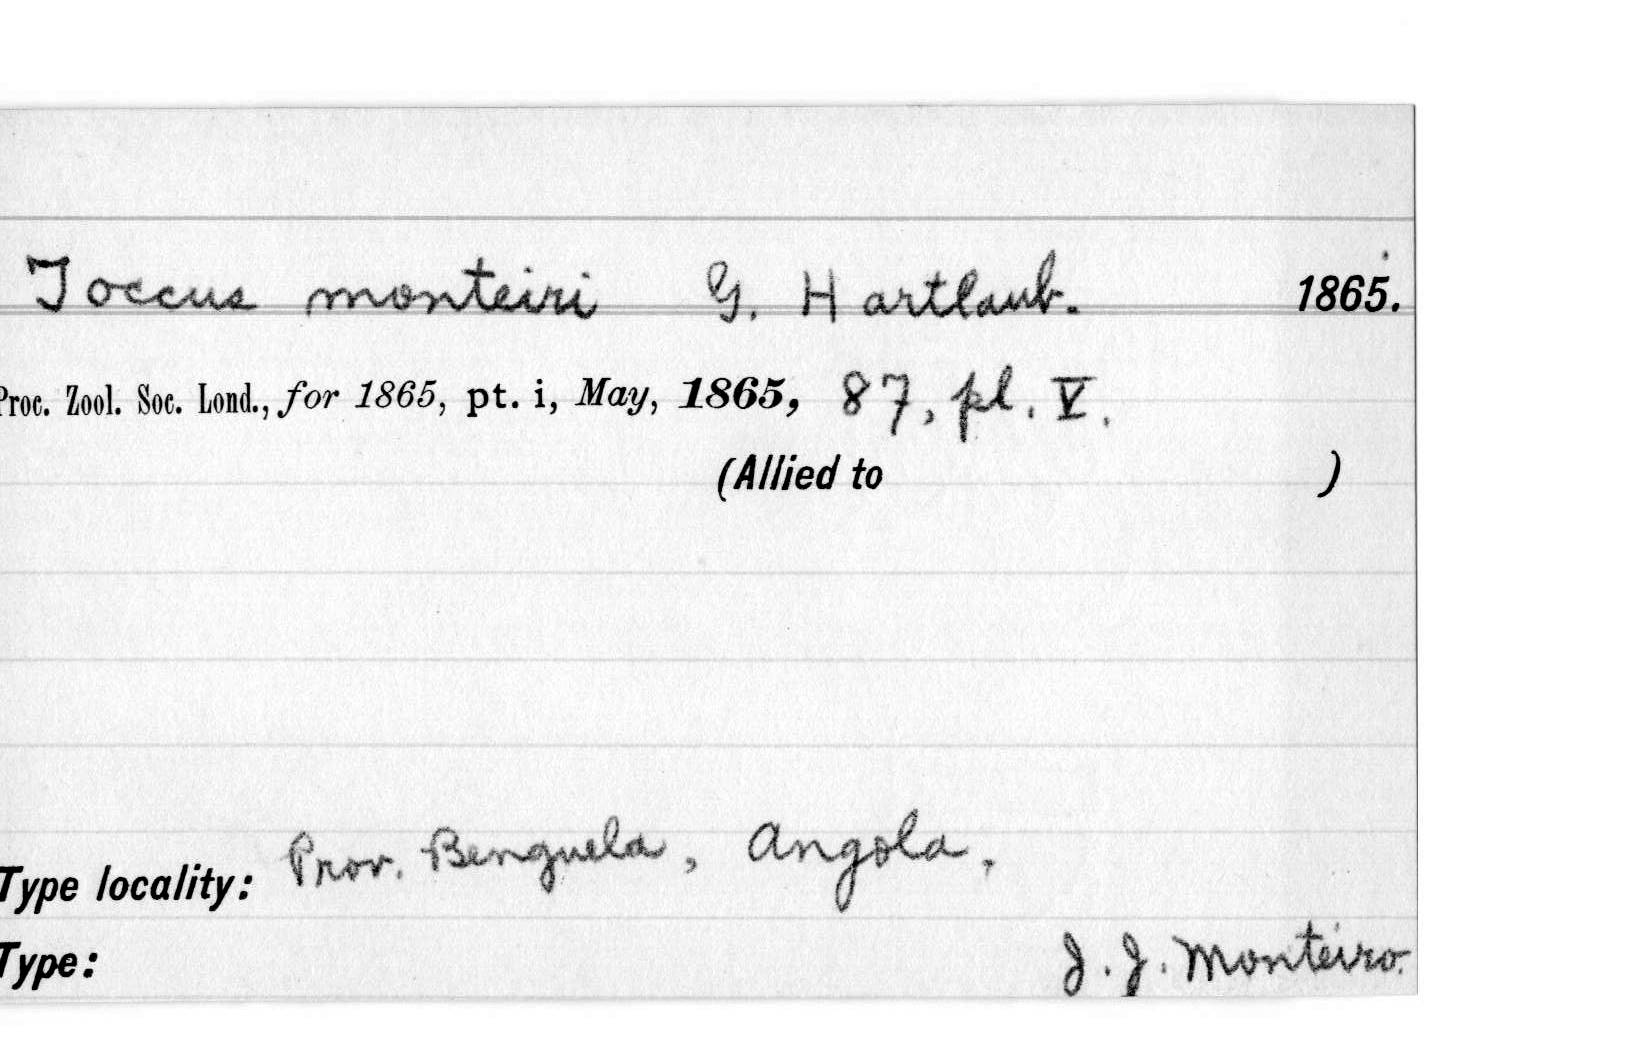 Toccus monteiri G. Hartlaub. 1865.
Proc. Zool. Soc. Lond., for 1865, pt. i, May, 1865, 87, pl. V.
(Allied to )
Type locality: Prov. Benguela, Angola.
Type: J. J. Monteiro.